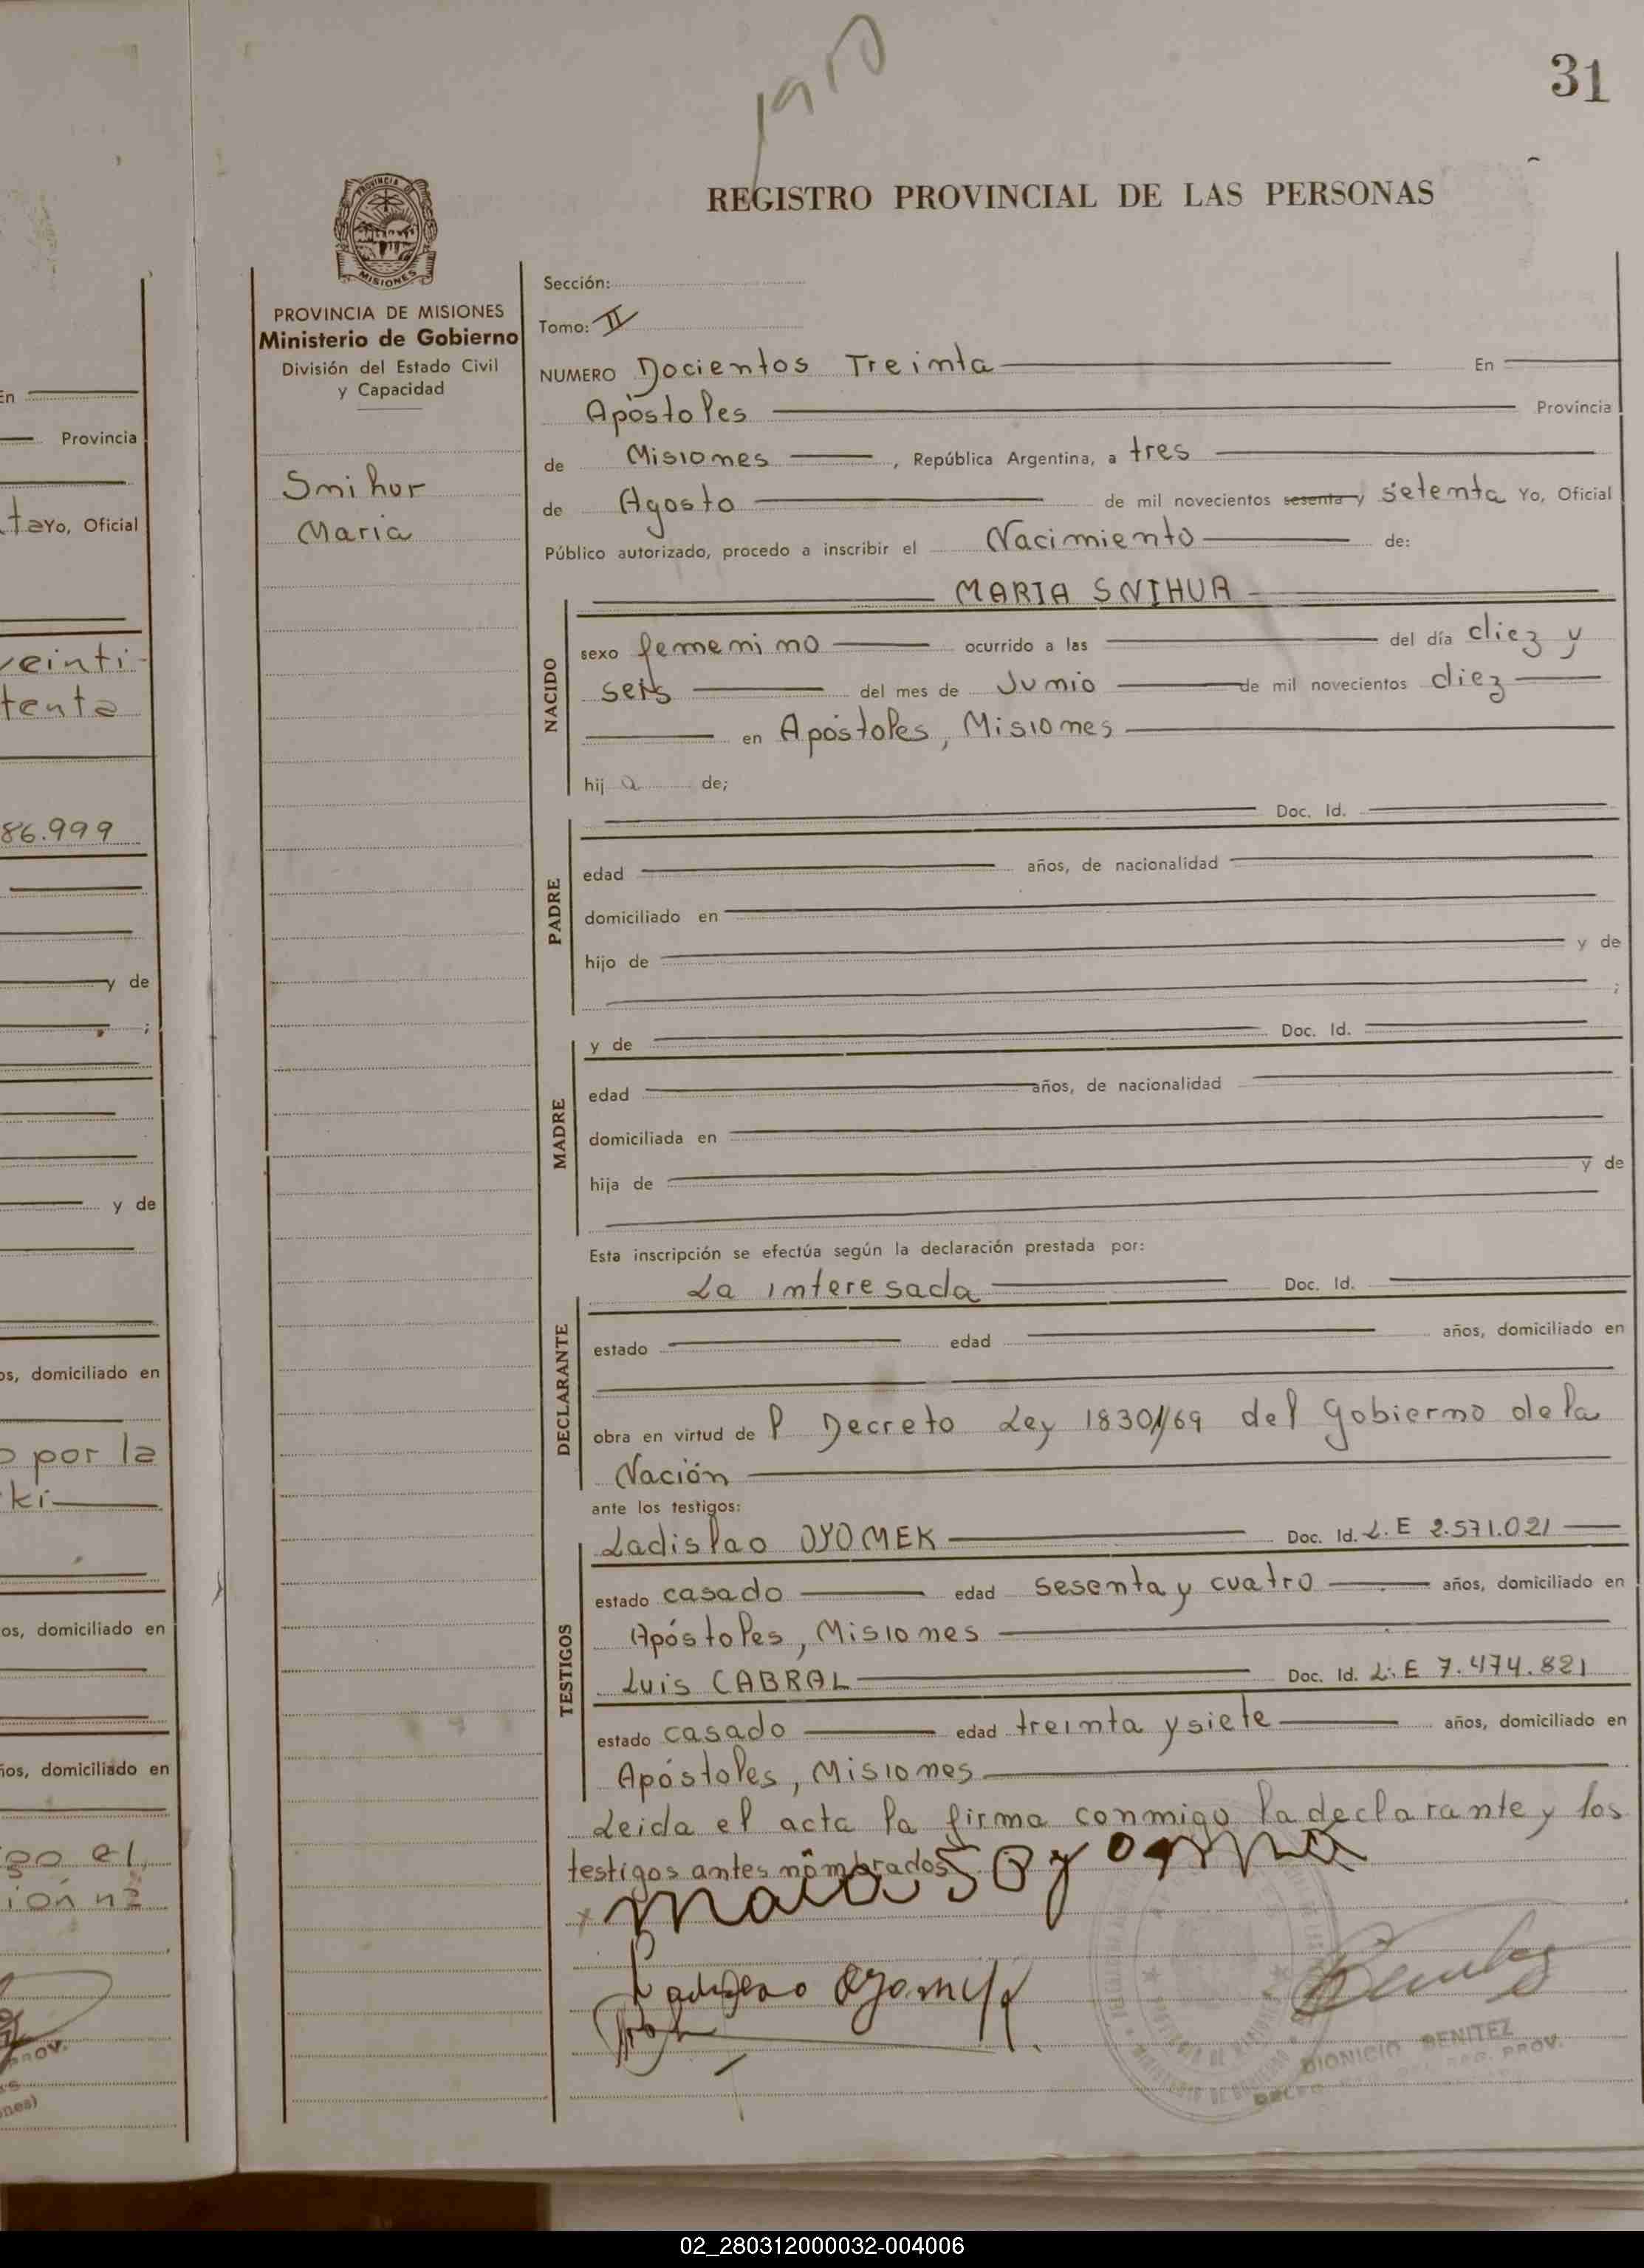 31
REGISTRO PROVINCIAL DE LAS PERSONAS
PROVINCIA DE MISIONES
MISIONES
PROVINCIA DE MISIONES
Ministerio de Gobierno
División del Estado Civil
y Capacidad
Snihur
Maria
Sección:
Tomo: II
NUMERO Docientos Treinta En
Apóstoles Provincia
de Misiones, República Argentina, a tres
de Agosto de mil novecientos sesenta y setenta Yo, Oficial
Público autorizado, procedo a inscribir el Nacimiento de:
NACIDO
MARIA SNIHUR
sexo femenino ocurrido a las del día diez y
seis del mes de Junio de mil novecientos diez
en Apóstoles, Misiones
hij a de;
PADRE
Doc. Id.
edad años, de nacionalidad
domiciliado en
hijo de y de
;
MADRE
y de Doc. Id.
edad años, de nacionalidad
domiciliada en
hija de y de
Esta inscripción se efectúa según la declaración prestada por:
DECLARANTE
La interesada Doc. Id.
estado edad años, domiciliado en
obra en virtud de l Decreto Ley 18301/69 del Gobierno de la
Nación
ante los testigos:
TESTIGOS
Ladislao OYOMEK Doc. Id. L.E 2.571.021
estado casado edad sesenta y cuatro años, domiciliado en
Apóstoles, Misiones
Luis CABRAL Doc. Id. L.E 7.474.821
estado casado edad treinta y siete años, domiciliado en
Apóstoles, Misiones
Leida el acta la firma conmigo la declarante y los
testigos antes nombrados
DIONICIO BENITEZ
PROV.
En
Provincia
ta Yo, Oficial
veinti-
tenta
86.999
y de
;
y de
os, domiciliado en
o por la
ki
os, domiciliado en
ños, domiciliado en
go el
ión nº
PROV.
02_280312000032-004006